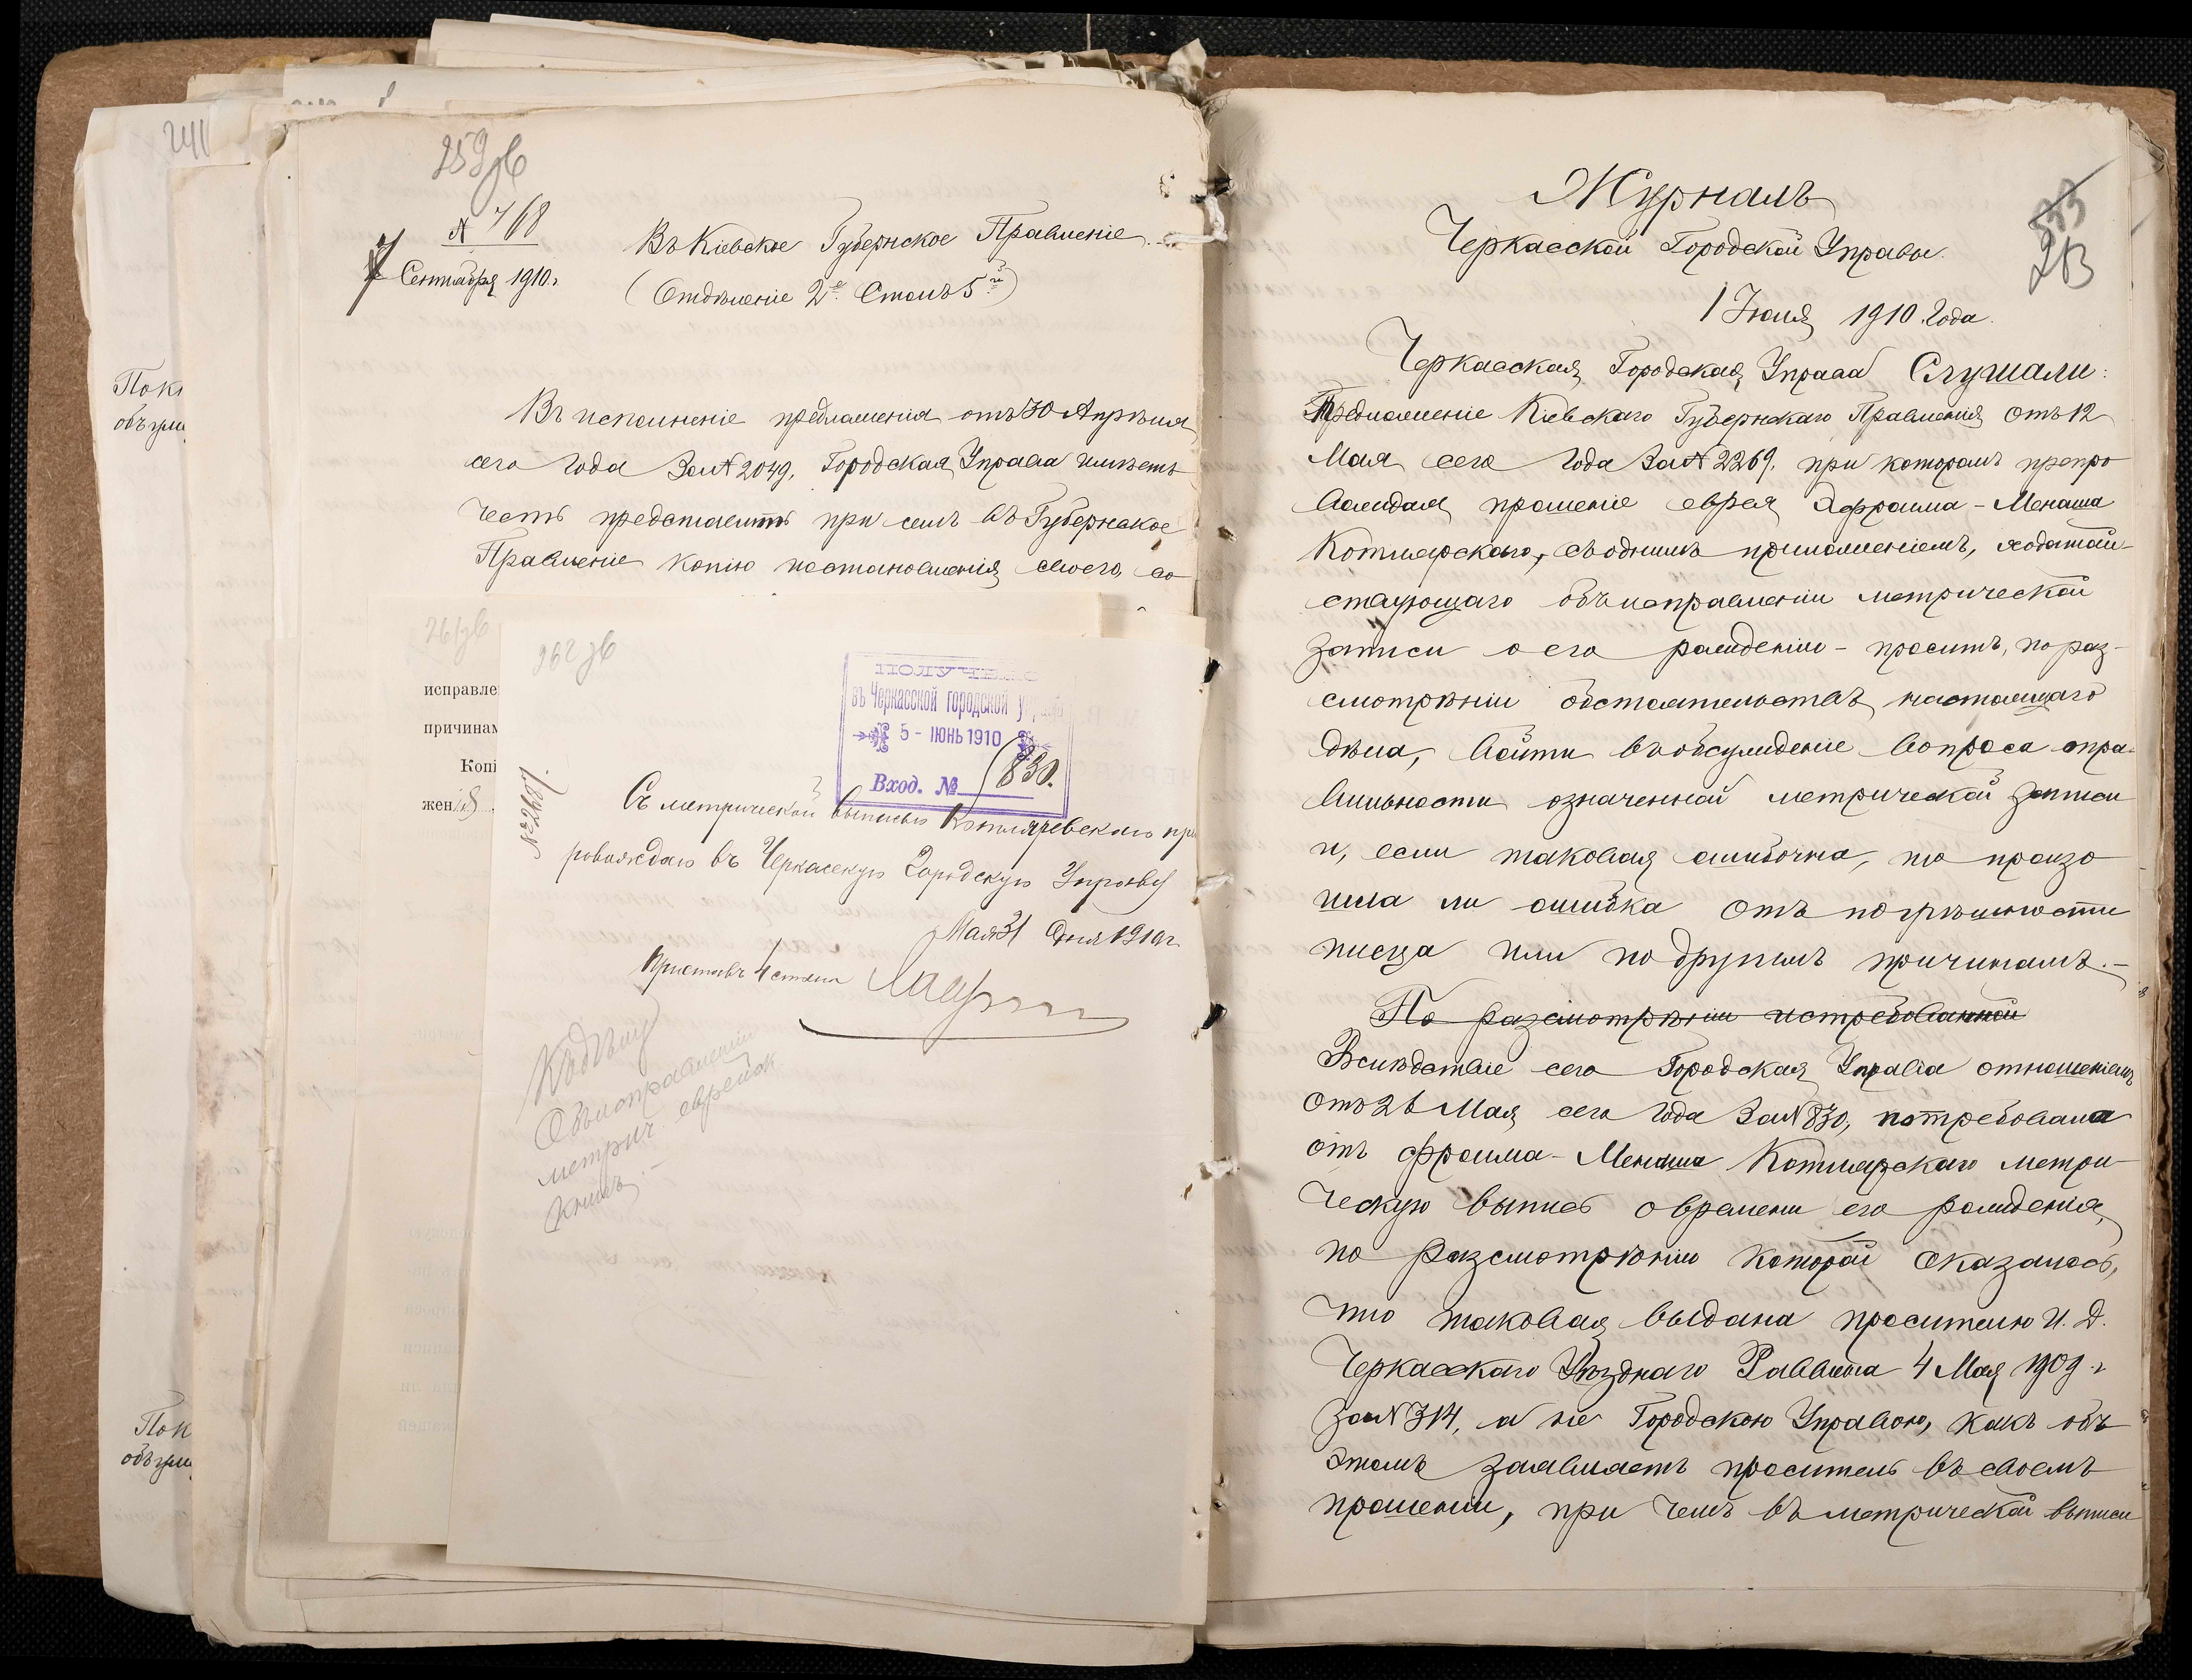 241
Покі
объули
Пок
объули
259 об
№ 768
7 Сентября 1910 г.
Въ Кіевское Губернское Правленіе
(Отдѣленіе 2е. Столъ 5й)
Въ исполненіе предложенія отъ 30 Апрѣля
сего года За № 2049, Городская Управа имѣетъ
честь представить при семъ въ Губернское
Правленіе копію постановленія своего, со
261 об
исправле
причинам
Копі
жен
262 об
ПОЛУЧЕНО
въ Черкасской городской управѣ
5 - ІЮНЬ 1910
Вход. № 830.
№ 2687.
Съ метрической выписью Котляревскаго пр
ровождаю въ Черкасскую Городскую Управу
Мая 31 дня 1910 г.
Приставъ 4 стана
Къ дѣлу
Объ исправленіи
метрич. еврейск
книгъ.-
333
263
Журналъ
Черкасской Городской Управы.
1 Іюля 1910 Года.
Черкасская Городская Управа Слушали:
Предложеніе Кіевскаго Губернскаго Правленія отъ 12
Мая сего года За № 2269, при которомъ препро
вождая прошеніе еврея Эфроима-Менаша
Котлярскаго, съ однимъ приложеніемъ, ходатай-
ствующаго объ исправленіи метрической
записи о его рожденіи - проситъ, по раз-
смотрѣніи обстоятельствъ настоящаго
дѣла, войти въ обсужденіе вопроса о пра-
вильности означенной метрической записи
и, если таковая ошибочна, то произо
шла ли ошибка отъ погрѣшности
писца или по другимъ причинамъ.-
По разсмотрѣніи истребованной
Вслѣдствіе сего Городская Управа отношеніемъ
отъ 26 Мая сего года За № 830, потребовала
отъ Фроима-Менаша Котлярскаго метри
ческую выпись о времени его рожденія,
по разсмотрѣнію которой оказалось,
что таковая выдана просителю И. Д.
Черкасскаго Уѣзднаго Раввина 4 Мая 1909 г.
За № 314, а не Городскою Управою, какъ объ
этомъ заявляетъ проситель въ своемъ
прошеніи, при чемъ въ метрической выписи